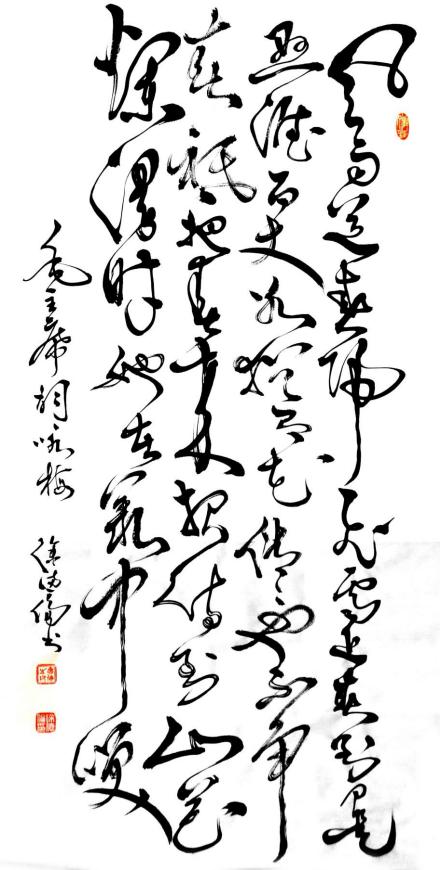 风雨送春归飞雪迎春到已是
悬崖百丈冰犹有花俏俏也不争
春祇把春来报待到山花
烂漫时她在丛中笑
毛主席词咏梅 徐书